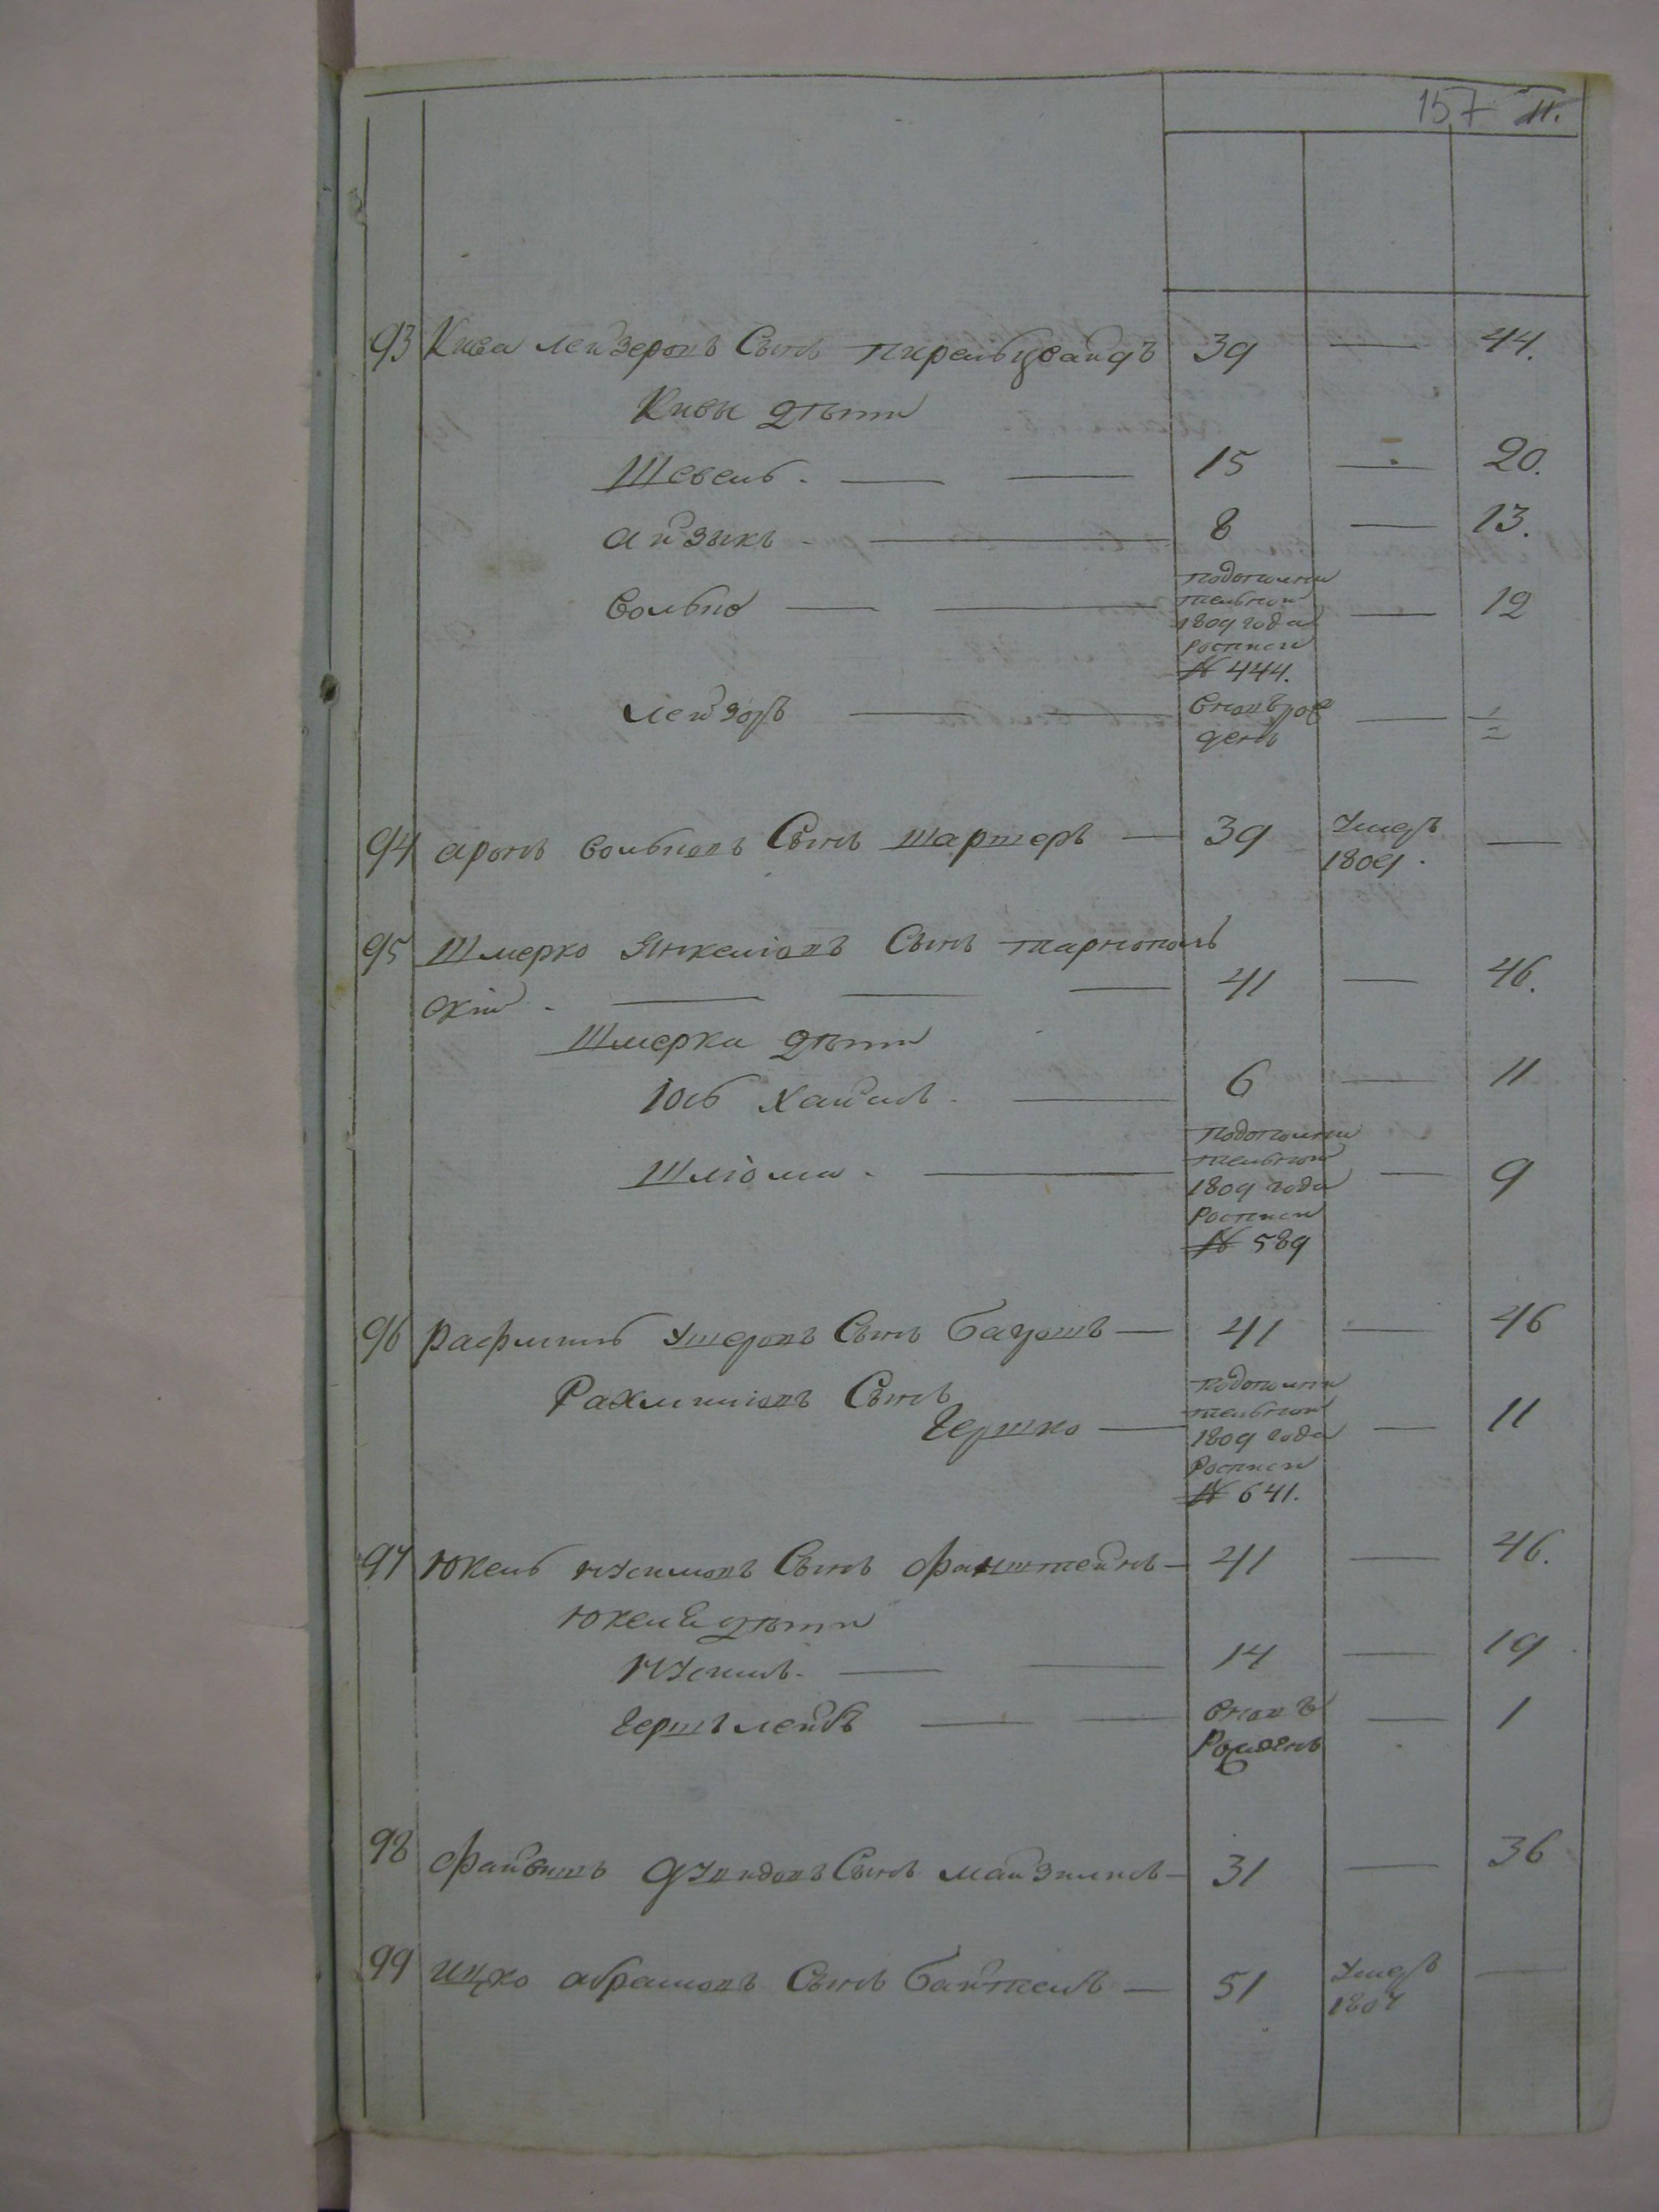 157 11.
93 Кива Лейзеровъ Сынъ Пирельцвайгъ 39 — 44.
Кивы дѣти
Шевель. — — 15 — 20.
Айзыкъ. — 8 — 13.
Волько — — подополни
тельной
1809 года
росписи
№ 444. — 12
Лейзоръ — — вновърож
денъ —
94 Аронъ Вольковъ Сынъ Шартеръ — 39 Умеръ
1809. —
95 Шмерко Янкеліовъ Сынъ Тарнополь
скій. — — — 41 — 46.
Шмерка дѣти
Іось Хаимъ. — 6 — 11
Шліома. — подополни
тельной
1809 года
росписи
№ 589 — 9
96 Рахмиль Ушеровъ Сынъ — 41 — 46
Рахмиліовъ Сынъ
Гершко — подополни
тельной
1809 года
росписи
№ 641. — 11
97 Юкель Нусимовъ Сынъ Файнштейнъ — 41 — 46.
Юкеля дѣти
Нусимъ. — — 14 — 19
Гершъ Лейбъ — — вновъ
рожденъ — 1
98 Файвишъ Сынъ Майзликъ — 31 — 36
99 Ицко Абрамовъ Сынъ Байтель — 51 Умеръ
1807 —